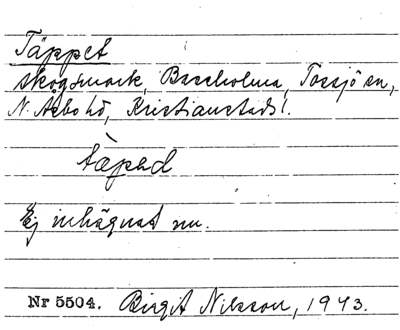 Täppet
skogsmark, Baccholma, Tossjö sn,
N. Åsbo hd, Kristianstads l.
täped
Ej inhägnat nu.
Nr 5504. Birgit Nilsson, 1943.